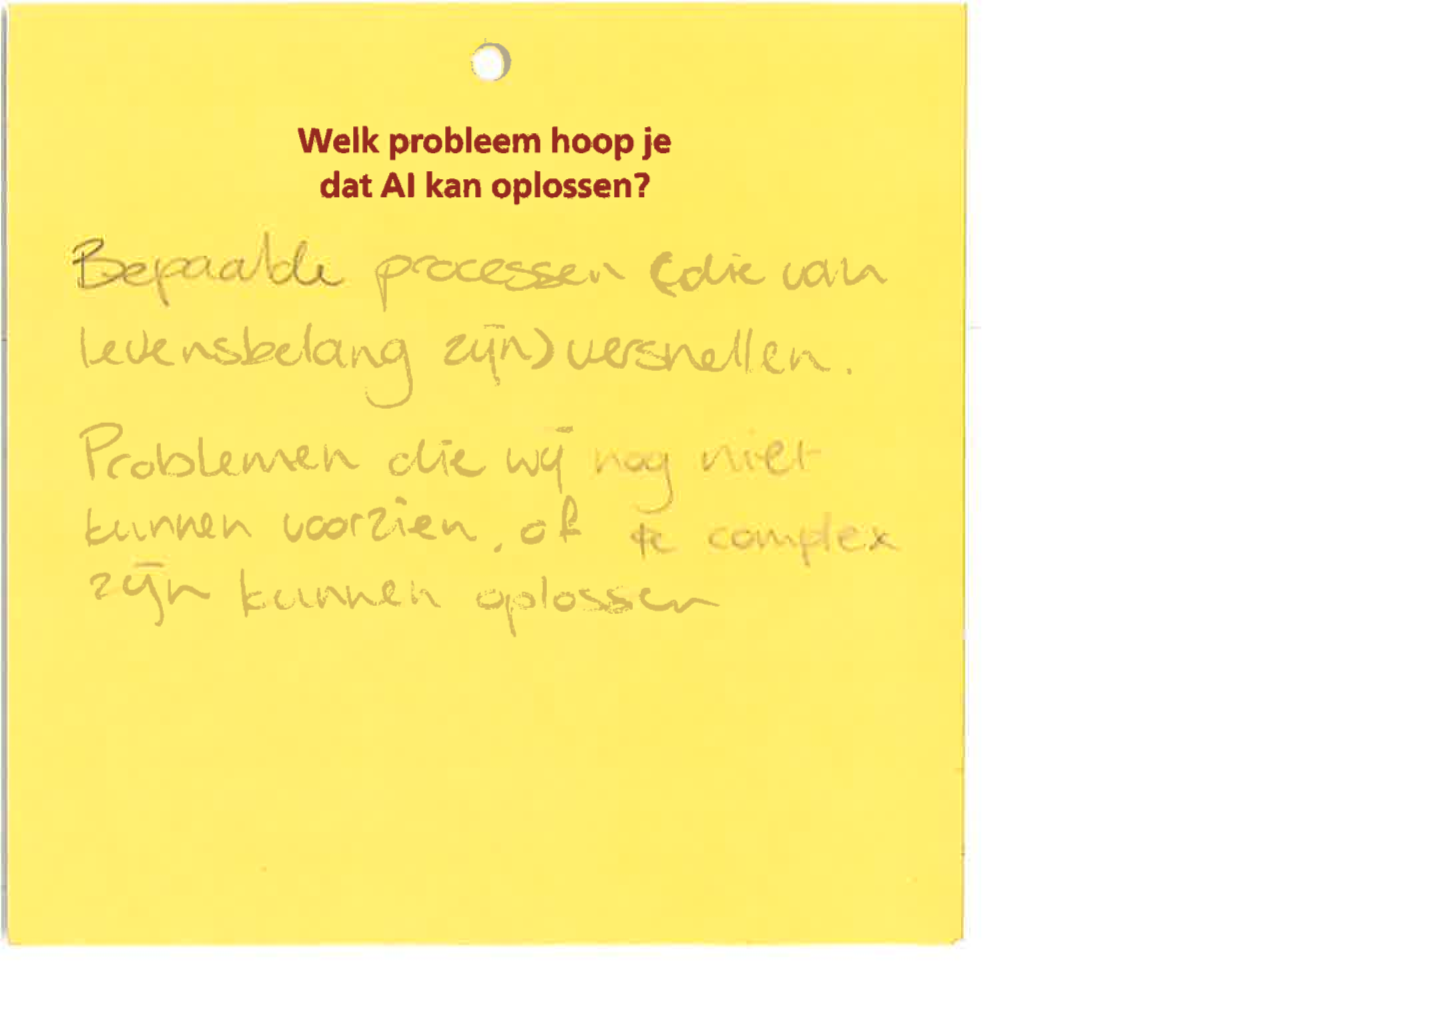 Welk probleem hoop je
dat AI kan oplossen?
Bepaalde processen (die van
levensbelang zijn) versnellen.
Problemen die wij nog niet
kunnen voorzien, of te complex
zijn kunnen oplossen